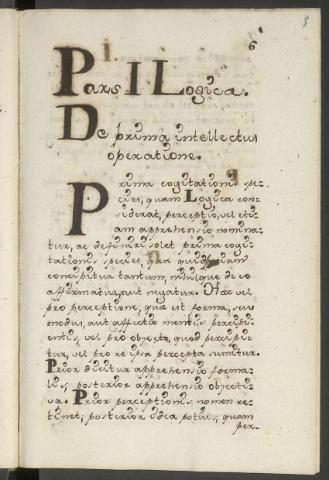 6
Pars I Logica.
De prima intellectus
operatione.
Prima cogitationis spe-
cies, quam Logica con-
siderat, perceptio, vel eti-
am apprehensio nomina-
tur, ac definiri solet prima cogi-
tationis species, qua quidpiam
concipitur tantum, nihilque de eo
affirmatur, aut negatur. Haec vel
pro perceptione, qua est forma, seu
modus, aut affectio mentis percipi-
entis, vel pro objecto, quod percipi-
tur, vel pro re ipsa percepta sumitur.
Prior dicitur apprehensio forma-
lis; posterior apprehensio objecti-
va. Prior perceptionis nomen re-
tinet; posterior idea potius, quam
per-